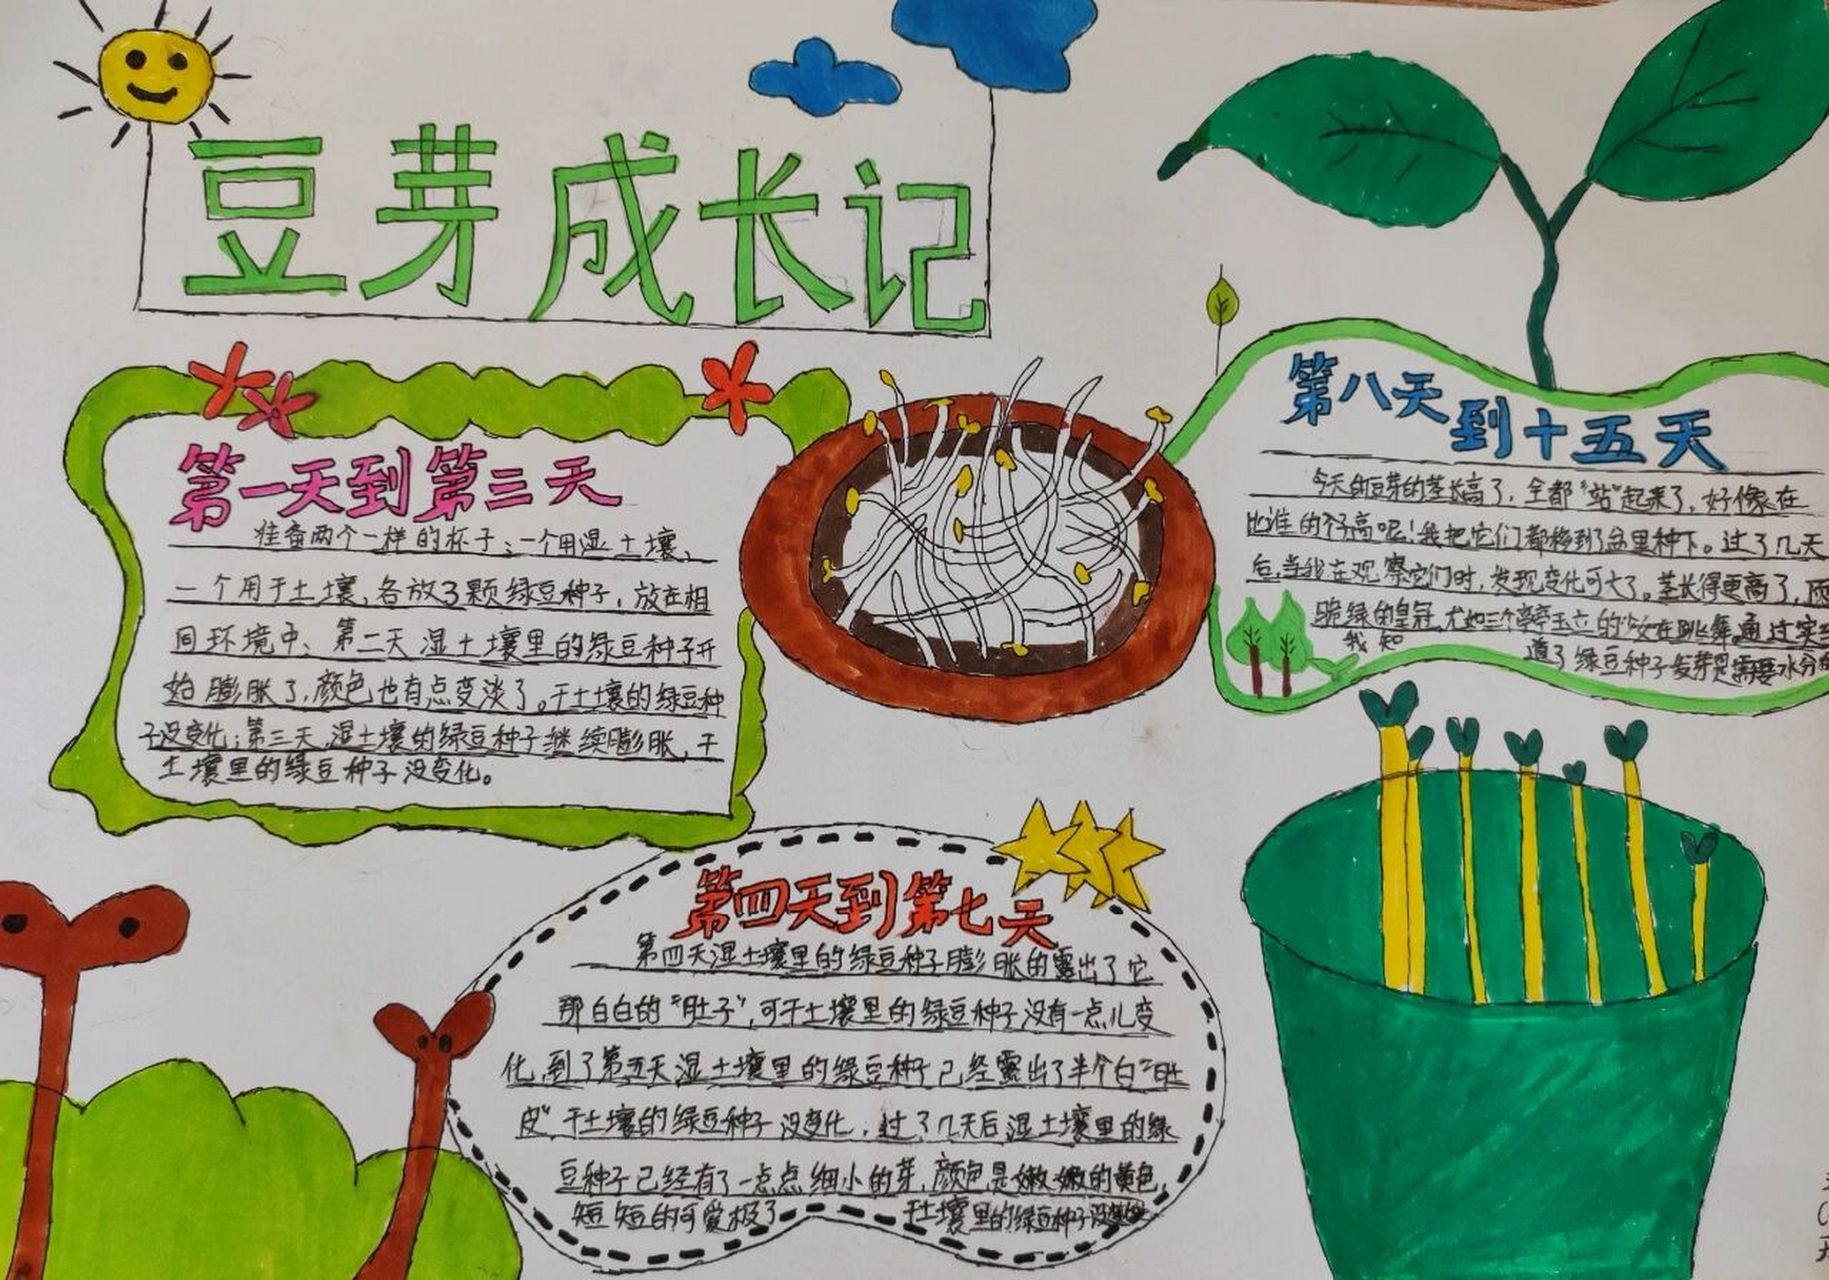 豆芽成长记
第一天到第三天
准备两个一样的杯子；一个用湿土壤、
一个用干土壤，各放了3颗绿豆种子，放在相
同环境中、第二天湿土壤里的绿豆种子开
始膨胀了，颜色也有点变淡了。干土壤的绿豆种
子没变化；第三天湿土壤的绿豆种子继续膨胀，干
土壤里的绿豆种子没变化。
第八天到十五天
今天的豆芽的茎长高了，全都“站”起来了，好像在
比谁的个子高呢！我把它们都移到了盆里种下。过了几天
后，当我在观察它们时，发现变化可大了。茎长得更高了，顶
脆绿的皇冠，尤如三个亭亭玉立的少女在跳舞。通过实
我知道了绿豆种子发芽是需要水分
第四天到第七天
第四天湿土壤里的绿豆种子膨胀的露出了它
那白白的“肚子”，可干土壤里的绿豆种子没有一点儿变
化，到了第五天湿土壤里的绿豆种子已经露出了半个白“肚
皮”干土壤的绿豆种子没变化，过了几天后湿土壤里的绿
豆种子已经有了一点点细小的芽，颜色是嫩嫩的黄色，
短短的可爱极了 干土壤里的绿豆种子没变化